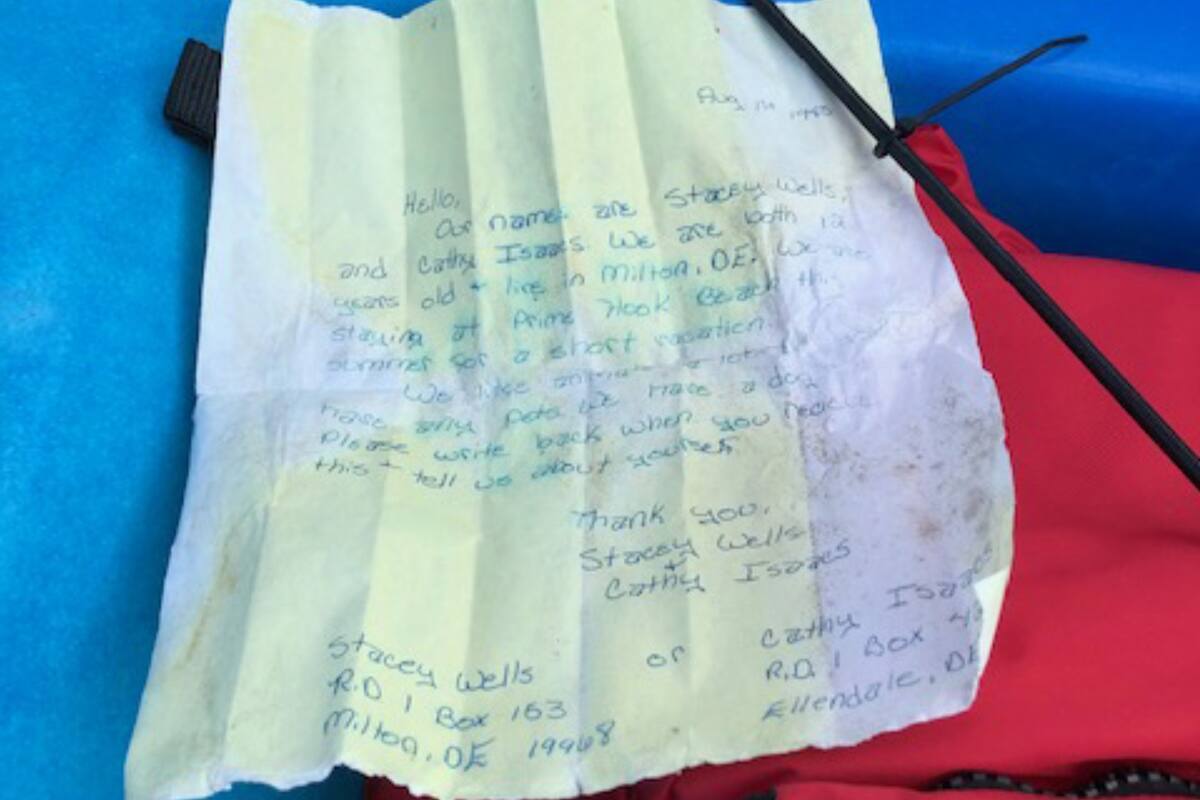 Aug 14 1983
Hello,
Our names are Stacey Wells,
and Cathy Isaacs. We are both 12
years old + live in Milton, DE. We are
staying at Prime Hook Beach this
summer for a short vacation.
We like animals a lot
have any pets we have a dog
Please write back when you
this + tell us about yourself.
Thank you,
Stacey Wells
+
Cathy Isaacs
Stacey Wells or Cathy Isaacs
R.D 1 Box 153 R.D. 1 Box
Milton, DE 19968 Ellendale, DE